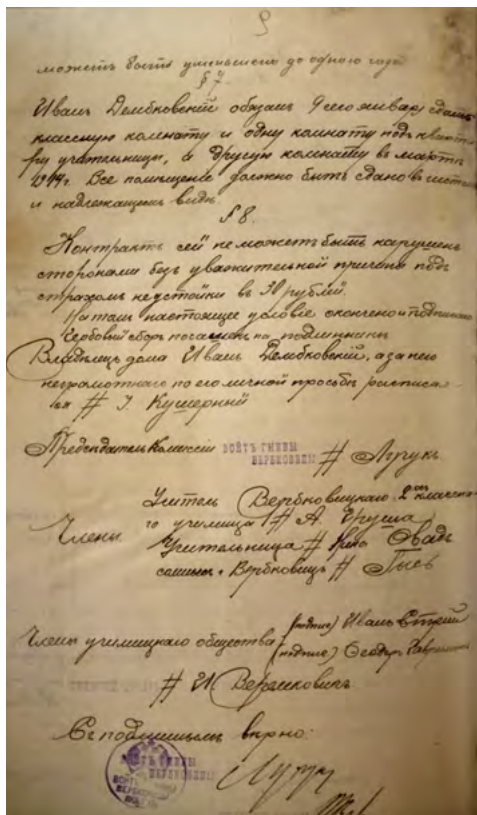 9
можетъ быть уменьшено до одного года
§ 7.
Иванъ Дембковскій обязанъ 9 сего января сдать
классную комнату и одну комнату подъ кварти-
ру учительницы, а другую комнату въ мартѣ
1914 г. Все помѣщеніе должно быть сдано въ чистомъ
и надлежащемъ видѣ.
§ 8.
Контрактъ сей не можетъ быть нарушенъ
сторонами безъ уважительной причины подъ
страхомъ неустойки въ 30 рублей.
На томъ настоящее условіе окончено и подписано
Гербовый сборъ погашенъ на подлинникѣ
Владѣлецъ дома Иванъ Дембковскій, а за него
неграмотнаго по его личной просьбѣ росписа-
лся # І. Кушерный
Предсѣдатель Комиссіи ВОЙТЪ ГМИНЫ
ВЕРБКОВИЦЫ #
Учитель Вербковицкаго 2 класна-
го училища # А. Груша
Члены: Учительница #
Вербковицъ # Гысь
Члены училищнаго общества (подпис) Иванъ
(подпис) Ѳеодоръ
# И
Съ подлиннымъ вѣрно:
ВОЙТЪ ГМИНЫ
ВЕРБКОВИЦЫ